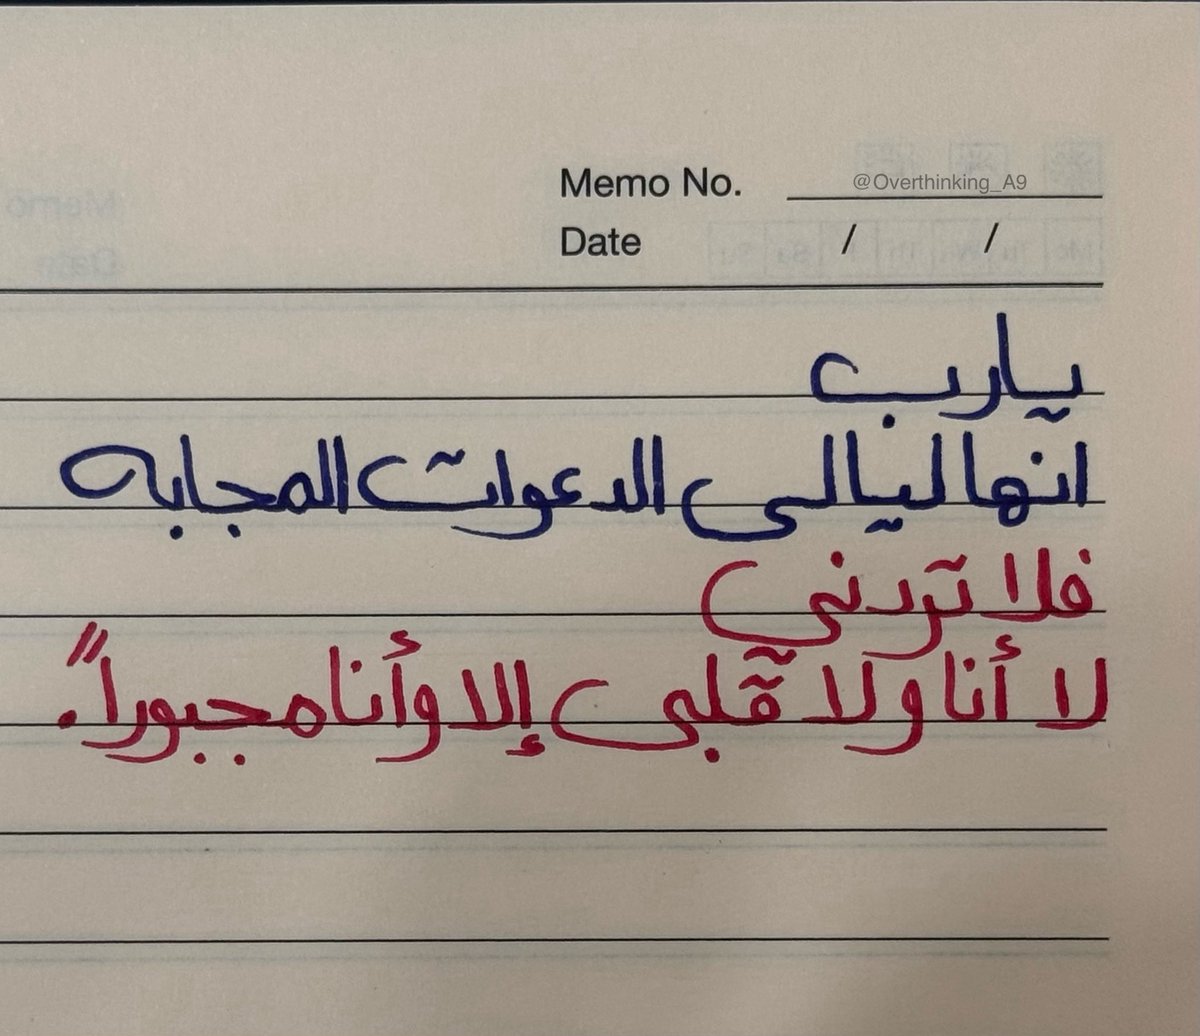 Memo No. @Overthinking_A9
Date / /
يارب
انها ليالي الدعوات المجابه
فلا تردني
لا أنا ولا قلبي إلا وأنا مجبوراً.